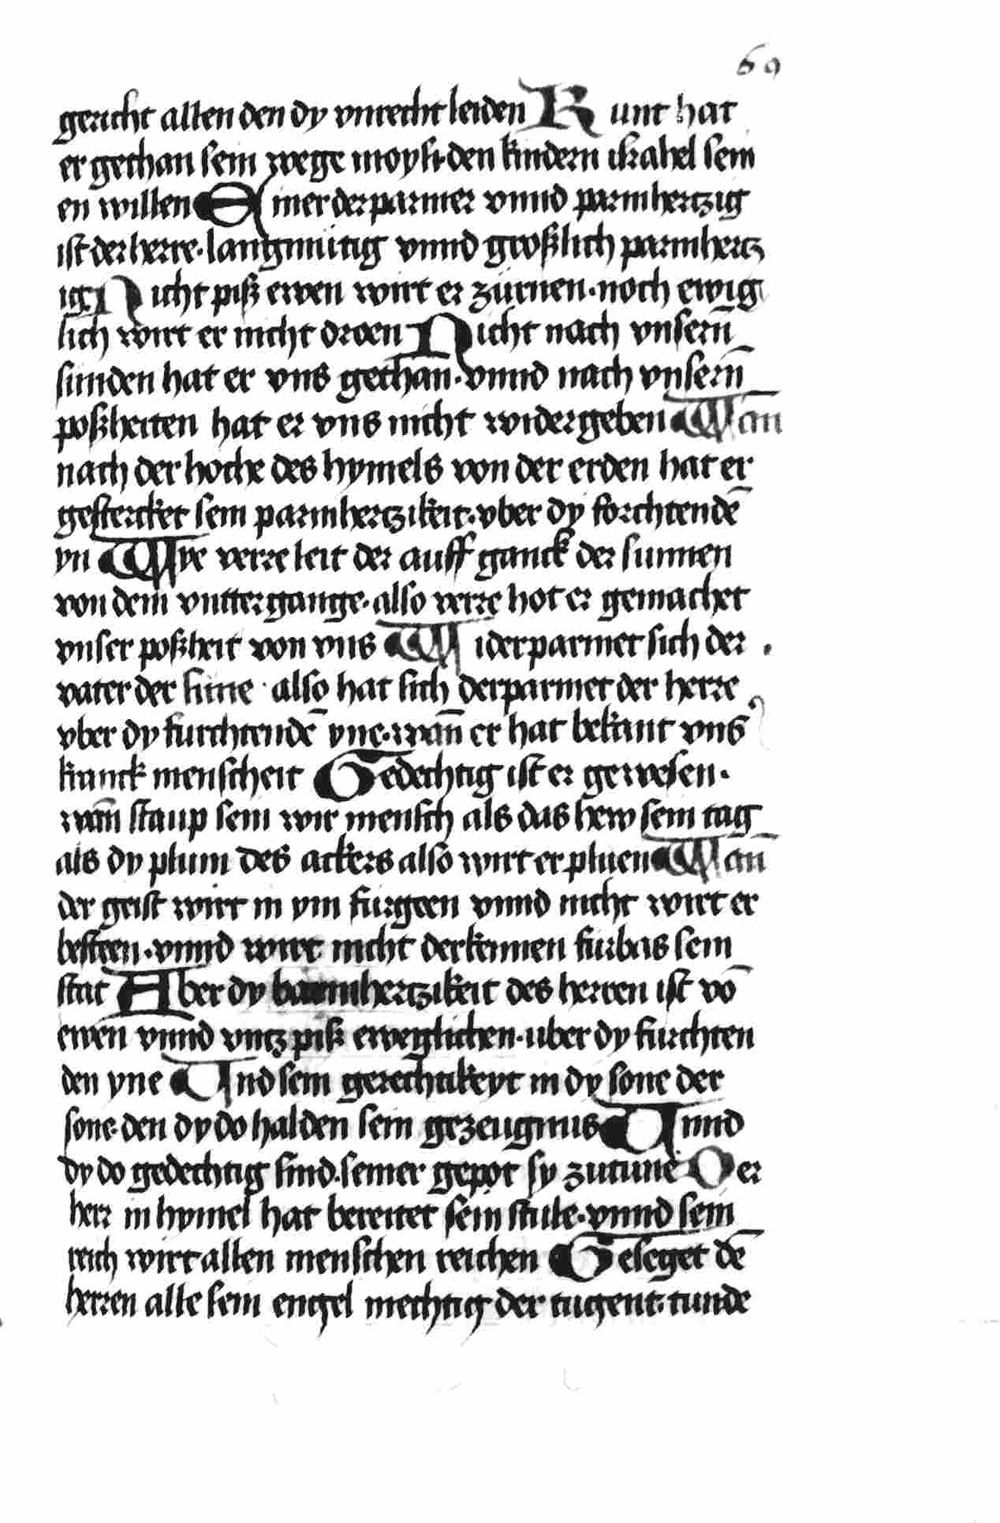 69
gericht allen den dy vnrecht leiden Kunt hat
er gethan sein wege moysi·den kindern israhel sein
en willen Einer derparmer vnnd parmhertzig
ist der herre·langmutig vnnd großlich parmhertz
ig Nicht piß ewen wirt er zürnen·noch ewig
lich wirt er nicht droen Nicht nach vnsern̄
sunden hat er vns gethan·vnnd nach vnsern̄
poßheiten hat er vns nicht widergeben Wan̄
nach der hoche des hymels von der erden hat er
gestercket sein parmhertzikeit·vber dy forchtendē
yn Wye verre leit der auff ganck der sunnen
von dem vnttergange·also verre hot er gemachet
vnser poßheit von vns Wi derparmet sich der
vater der sune·also hat sich derparmet der herre
vber dy furchtendē yne·wan̄ er hat bekant vns
kranck menscheit Gedechtig ist er gewesen·
wan̄ staup sein wir mensch als das hew sein tag
als dy plum des ackers also wirt er pluen Wan̄
der geist wirt in ym furgeen vnnd nicht wirt er
besteen·vnnd wirt nicht derkennen furbas sein
stat Aber dy barmhertzikeit des herren ist vō
ewen vnnd vntz piß eweglichen·uber dy furchten
den yne Und sein gerechtikeyt in dy sone der
sone·den dy do halden sein gezeugnus Unnd
dy do gedechtig sind·seiner gepot sy zutune Der
herr in hymel hat bereitet sein stule·vnnd sein
reich wirt allen menschen reichen Geseget dē
herren alle sein engel mechtig der tugent·tunde